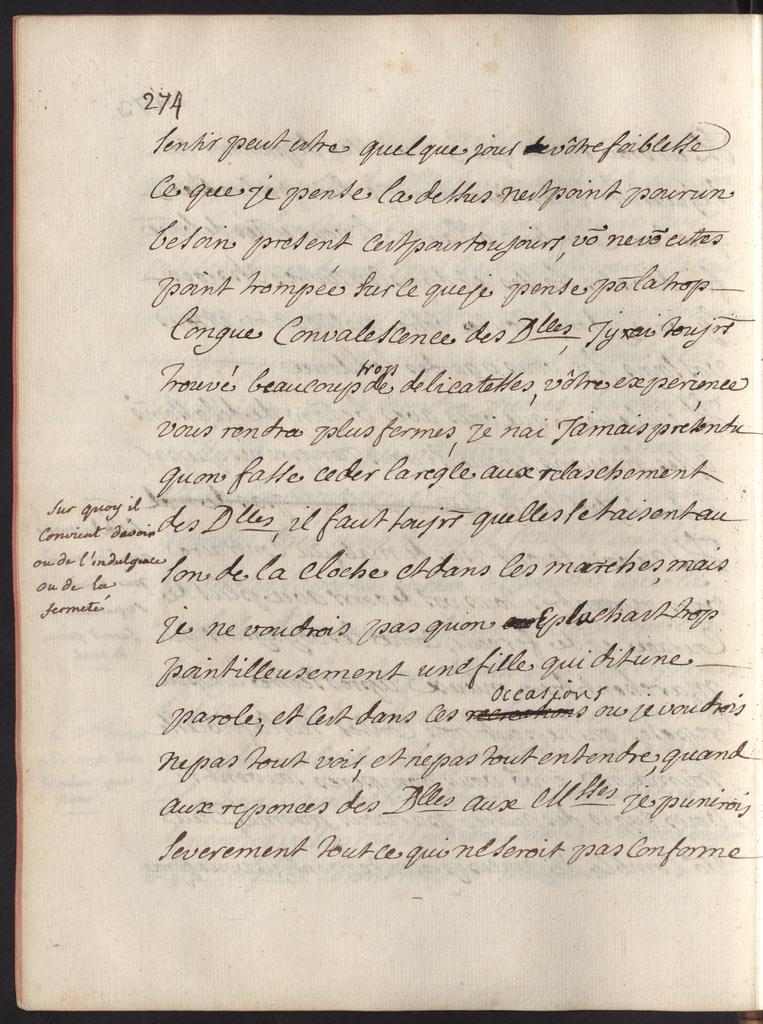 274
sentir peut estre quelque jour de vôtre foiblesse
ce que je pense la dessus nest point pour un
besoin present cest pour toujours, vō ne vō estes
point trompée sur ce que je pense pō la trop
longue convalescence des Dlles, Jy ai toujrs
trouvé beaucoup trop de delicatesses, vôtre experience
vous rendra plus fermes, je nai Jamais prétendu
quon fasse ceder la regle aux relaschement
Sur quoy il
convient davoir
ou de l'indulgence
ou de la
fermeté
des Dlles, il faut toujrs quelles se taisent au
son de la cloche et dans les marches, mais
je ne voudrois pas quon epluchast trop
pointilleusement une fille qui dit une
parole, et cest dans ces occasions ou je voudrois
ne pas tout voir, et ne pas tout entendre, quand
aux reponces des Dlles aux Msses je punirois
severement tout ce qui ne seroit pas conforme